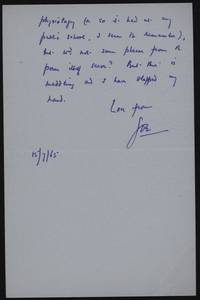 physiology (or so it had at my
public school, I seem to remember),
but not some phrase from the
poem itself serve? But this is
meddling and I have slapped my
hand.
Love from
15/7/65